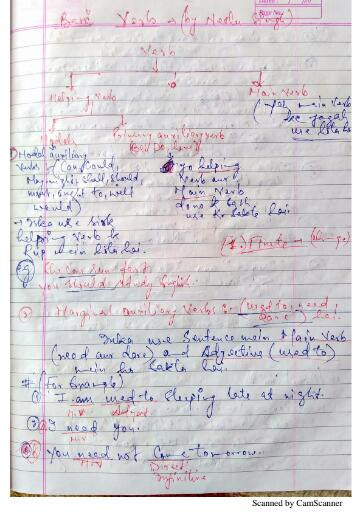 Basic Verb → (by Neetu Singh)
Verb
Helping Verb
Main Verb
(Yah main verb
ke jagah
use hota hai
Modals
Primary auxiliary verb
Be, Do, have
① Modal auxiliary
Verbs - (Can, Could,
May, might, shall, should,
must, ought to, will
would)
helping
Verb aur
Main Verb
dono ke sath
use ho sakte hai.
→ Inka use sirf
helping Verb ke
Rup mein hota hai.
(1.) Finite →
eg. She can run fast
you should study English.
② Marginal auxiliary Verbs : (used to, need,
Dare) hai.
Inka use Sentence mein Main Verb
(need aur dare) and Adjective (used to)
mein ho sakta hai.
# (for Example)
① I am used to sleeping late at night.
M.V Adject
② I need you.
M.V
You need not come tomorrow.
M.V Direct
Infinitive
Scanned by CamScanner